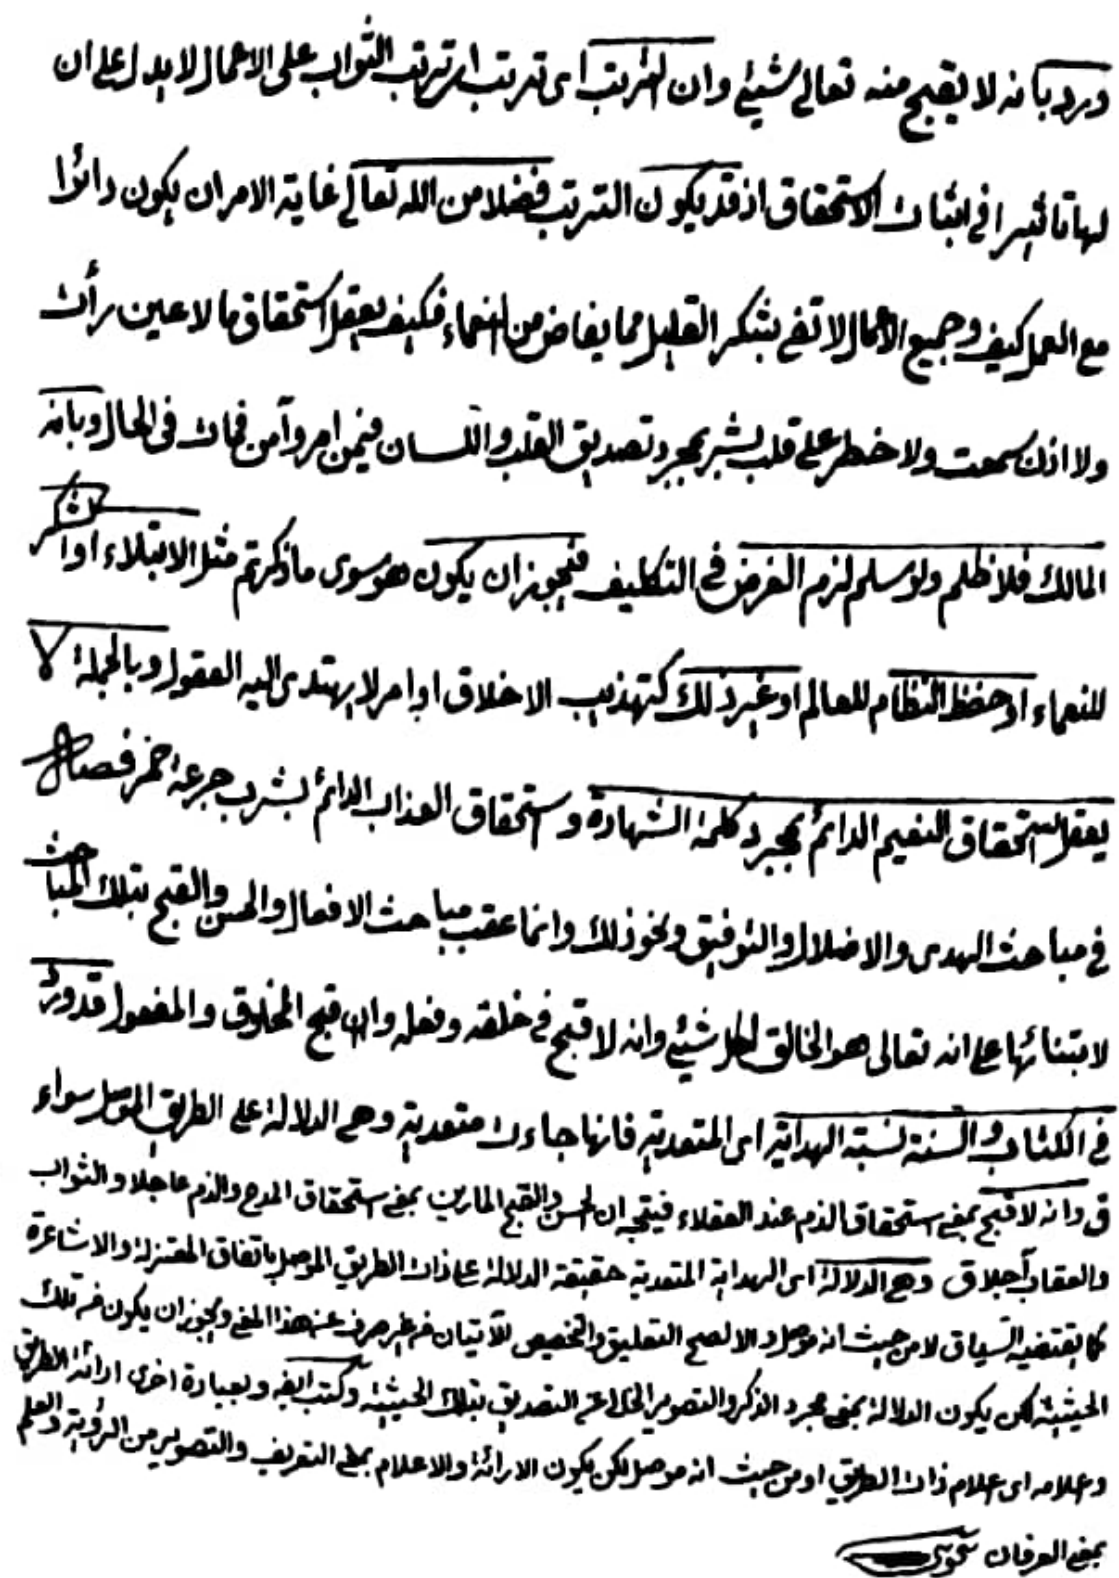 ورد بانه لا يقبح منه تعالى شيئ وان الترتب اى ترتب الثواب على الاعمال لا يدل على ان
لها تاثيرا في اثبات الاستحقاق اذ قد يكون الترتب فضلا من الله تعالى غاية الامر ان يكون دائرا
مع العمل كيف وجميع الاعمال لا تفى بشكر القليل مما يفاض من النعماء فكيف يعقل استحقاق ما لا عين رأت
ولا اذن سمعت ولا خطر على قلب بشر بمجرد تصديق القلب واللسان فيمن امر وآمن فمات فى الحال وبانه
المالك فلا ظلم ولو سلم لزم الغرض في التكليف فيجوز ان يكون هو سوى ما ذكرتم مثل الابتلاء او الشكر
للنعماء او حفظ النظام للعالم او غير ذلك كتهذيب الاخلاق او امر لا يهتدى اليه العقول وبالجملة لا
يعقل استحقاق النعيم الدائم بمجرد كلمة الشهادة واستحقاق العذاب الدائم بشرب جرعة خمر فصل
في مباحث الهدى والاضلال والتوفيق ونحو ذلك وانما عقب مباحث الافعال والحسن والقبح بتلك المباحث
لابتنائها على انه تعالى هو الخالق لكل شيئ وانه لا قبح في خلقه وفعله وان قبح المخلوق والمفعول قد ورد
في الكتاب والسنة نسبة الهداية اى المتعدية فانها جاءت متعدية وهى الدلالة على الطريق الموصل سواء
ق وانه لا قبح بمعنى استحقاق الذم عند العقلاء فيتجه ان الحسن والقبح المارين بمعنى استحقاق المدح والذم عاجلا والثواب
والعقاب آجلا ق وهى الدلالة اى الهداية المتعدية حقيقة الدلالة على ذات الطريق الموصل باتفاق المعتزلة والاشاعرة
كما يقتضيه السياق لا من حيث انه موصل والا لصح التعليق والتخصيص للآتيان صرف عنه هذا المعنى ويجوز ان يكون تلك
الحيثية لكن يكون الدلالة بمعنى مجرد الذكر والتصوير الخال عن التصديق بتلك الحيثية وكتب ايضه وبعبارة اخرى ارائة الطريق
وعلامه اى اعلام ذات الطريق او من حيث انه موصل لكن يكون الارائة والاعلام بمعنى التعريف والتصوير من الرؤية والعلم
بمعنى العرفان